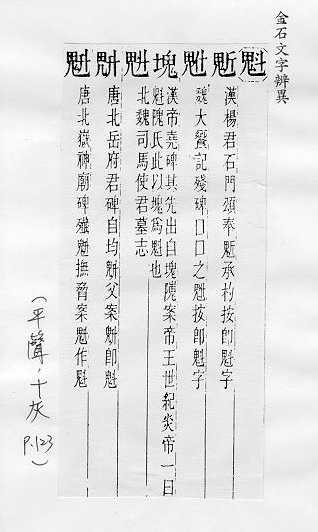 金石文字辨異
魁
漢楊君石門頌奉承杓按即魁字
魏大饗記殘碑口口之按即魁字
塊
漢帝堯碑其先出白塊隗案帝王世紀炎帝一曰
魁隗氏此以塊爲魁也
北魏司馬使君墓志
唐北岳府君碑自均父案即魁
唐北嶽神廟碑殲撫脅案魁作
(平聲．十灰
P.123)